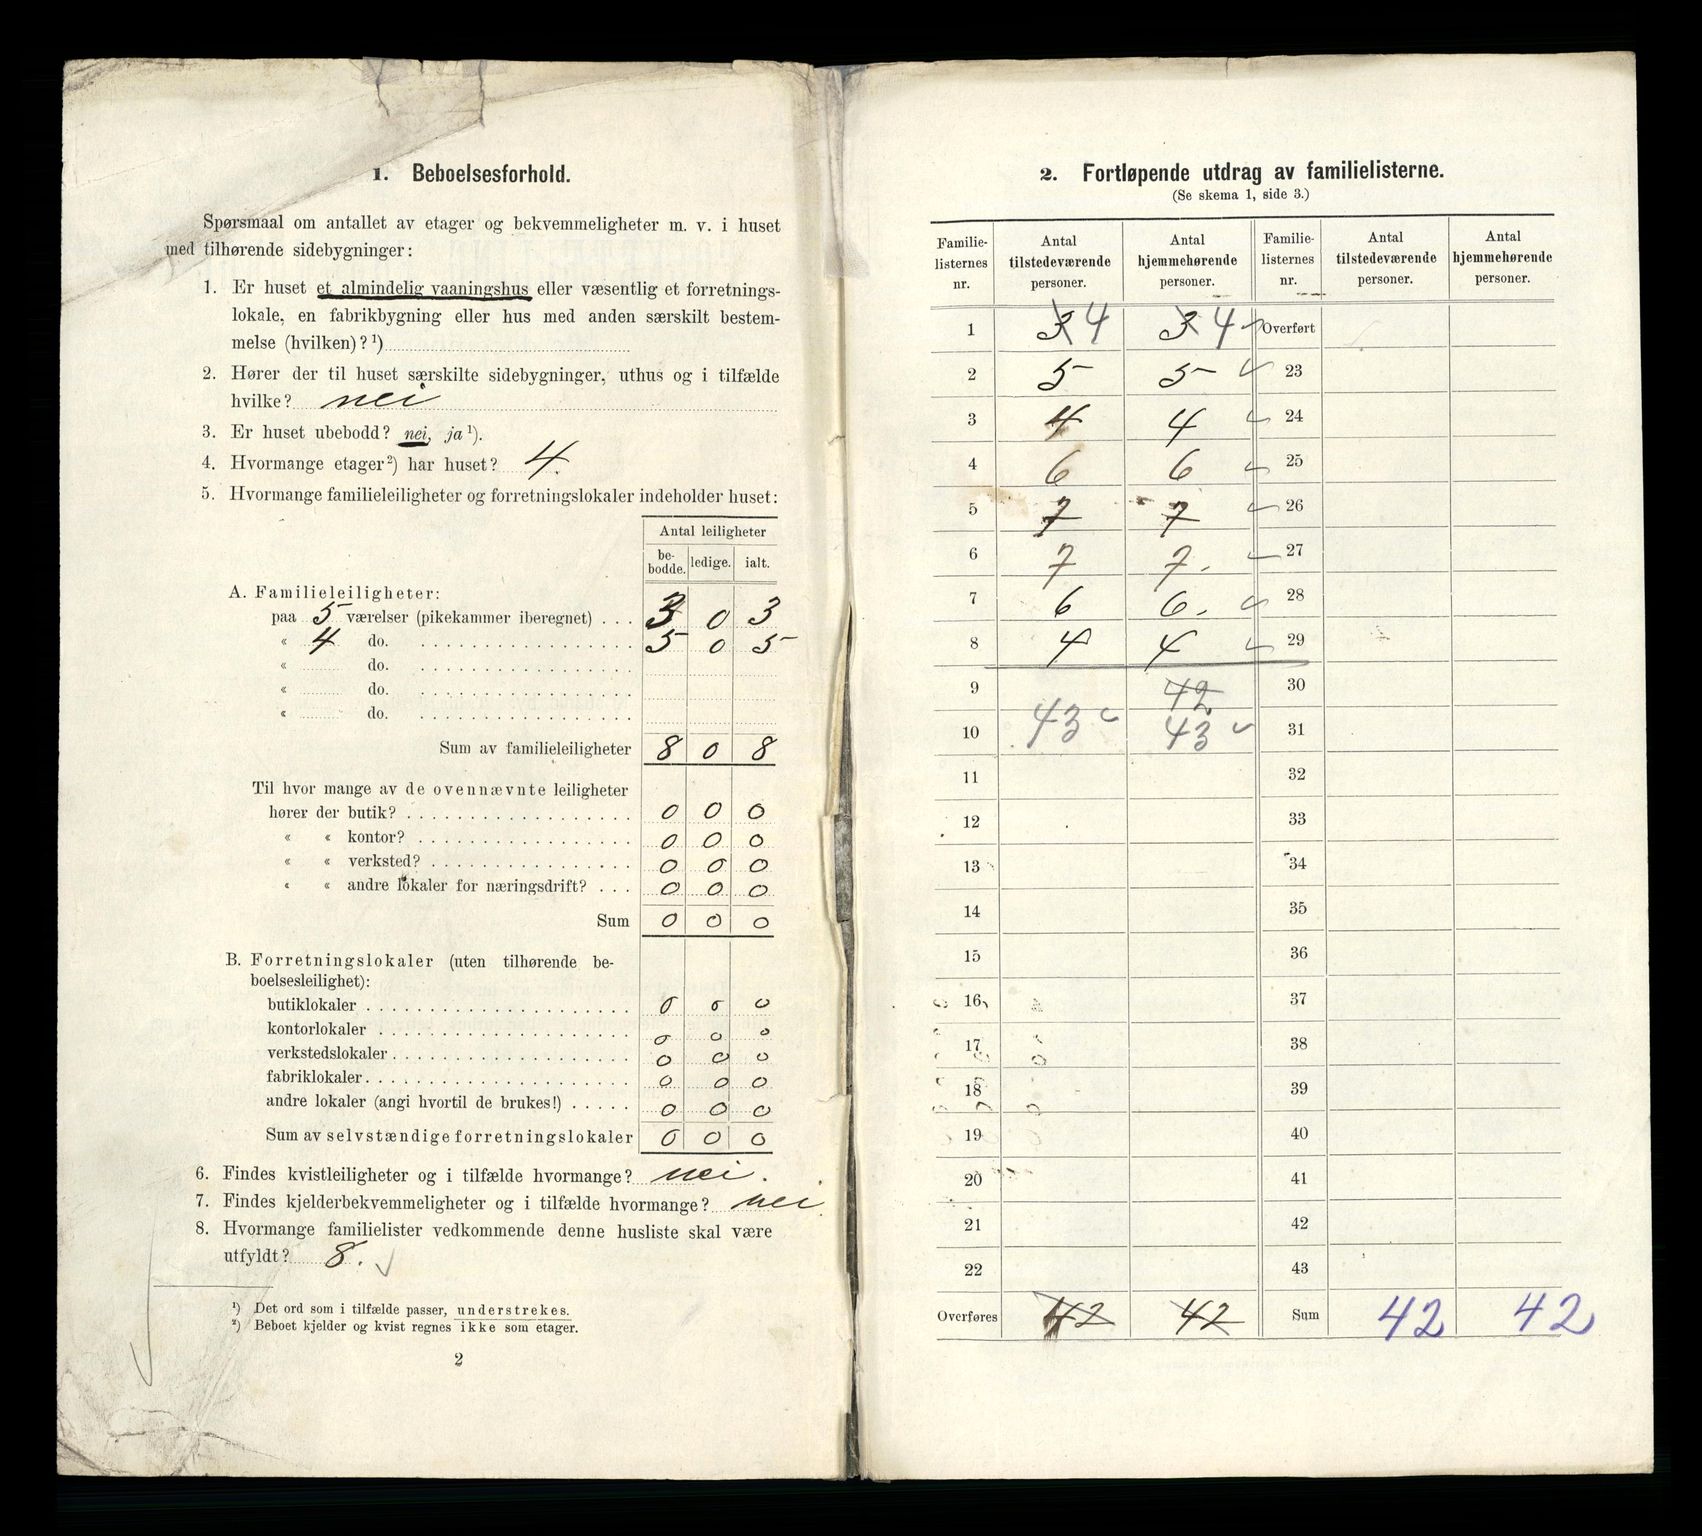 1. Beboelsesforhold.
Spørsmaal om antallet av etager og bekvemmeligheter m. v. i huset
med tilhørende sidebygninger:
1. Er huset et almindelig vaaningshus eller væsentlig et forretnings-
lokale, en fabrikbygning eller hus med anden særskilt bestem-
melse (hvilken)? ¹)
2. Hører der til huset særskilte sidebygninger, uthus og i tilfælde
hvilke? nei
3. Er huset ubebodd? nei, ja ¹).
4. Hvormange etager ²) har huset? 4.
5. Hvormange familieleiligheter og forretningslokaler indeholder huset:
Antal leiligheter
be-bodde. ledige. ialt.
A. Familieleiligheter:
paa 5 værelser (pikekammer iberegnet) . . . 3 0 3
« 4 do. 5 0 5
« do.
« do.
« do.
Sum av familieleiligheter 8 0 8
Til hvor mange av de ovennævnte leiligheter
hører der butik? 0 0 0
« « kontor? 0 0 0
« « verksted? 0 0 0
« « andre lokaler for næringsdrift? . . . 0 0 0
Sum 0 0 0
B. Forretningslokaler (uten tilhørende be-
boelsesleilighet):
butiklokaler 0 0 0
kontorlokaler 0 0 0
verkstedslokaler 0 0 0
fabriklokaler 0 0 0
andre lokaler (angi hvortil de brukes!) 0 0 0
Sum av selvstændige forretningslokaler 0 0 0
6. Findes kvistleiligheter og i tilfælde hvormange? nei.
7. Findes kjelderbekvemmeligheter og i tilfælde hvormange? nei
8. Hvormange familielister vedkommende denne husliste skal være
utfyldt? 8.
¹) Det ord som i tilfælde passer, understrekes.
²) Beboet kjelder og kvist regnes ikke som etager.
2
2. Fortløpende utdrag av familielisterne.
(Se skema 1, side 3.)
Familie-listernes nr. Antal tilstedeværende personer. Antal hjemmehørende personer. Familie-listernes nr. Antal tilstedeværende personer. Antal hjemmehørende personer.
1 3 4 3 4 Overført
2 5 5 23
3 4 4 24
4 6 6 25
5 7 7 26
6 7 7. 27
7 6 6. 28
8 4 4 29
9 42 30
10 43 43 31
11 32
12 33
13 34
14 35
15 36
16 37
17 38
18 39
19 40
20 41
21 42
22 43
Overføres 42 42 Sum 42 42